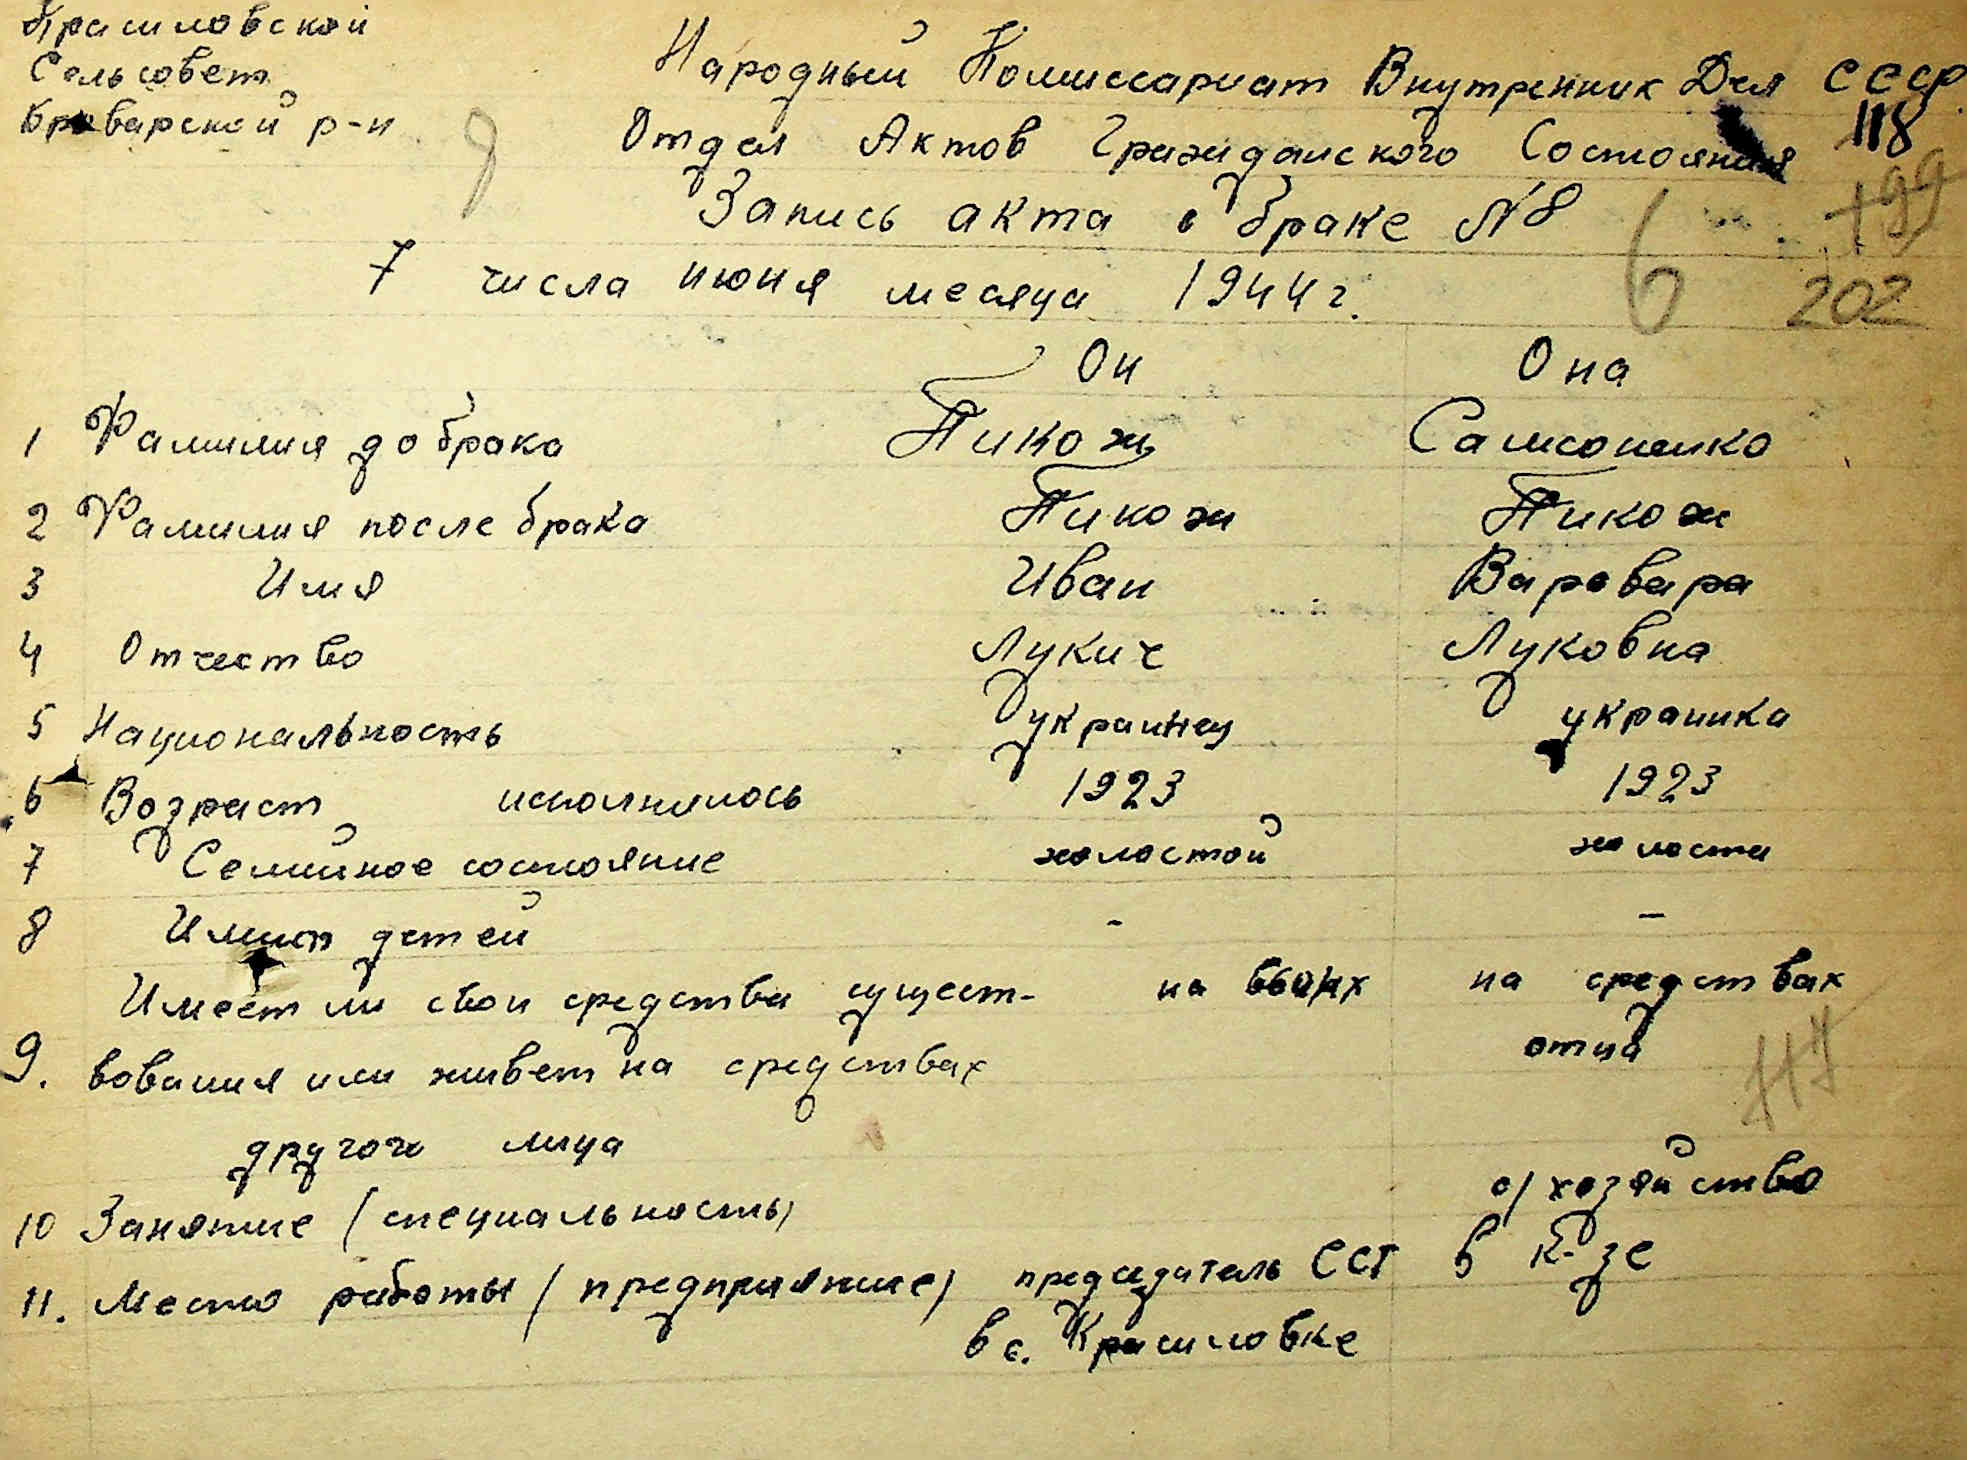 Красиловской
Сельсовет
Броварской р-н
Народный Комиссариат Внутренних Дел СССР
118
Отдел Актов Гражданского Состояния
+99
Запись акта о браке N8
7 числа июня месяца 1944 г.
6
202
Он Она
1 Фамилия до брака Пикож Самсоненко
2 Фамилия после брака Пикож Пикож
3 Имя Иван Варвара
4 Отчество Лукич Луковна
5 Национальность украинец украинка
6 Возраст исполнилось 1923 1923
7 Семейное состояние холостой холоста
8 Имеет детей - -
Имеет ли свои средства сущест- на своих на средствах
9. вования или живет на средствах отца
другого лица
10 Занятие (специальность) с/хозяйство
11. Место работы (предприятие) председатель ССТ в к-зе
в с. Красиловке